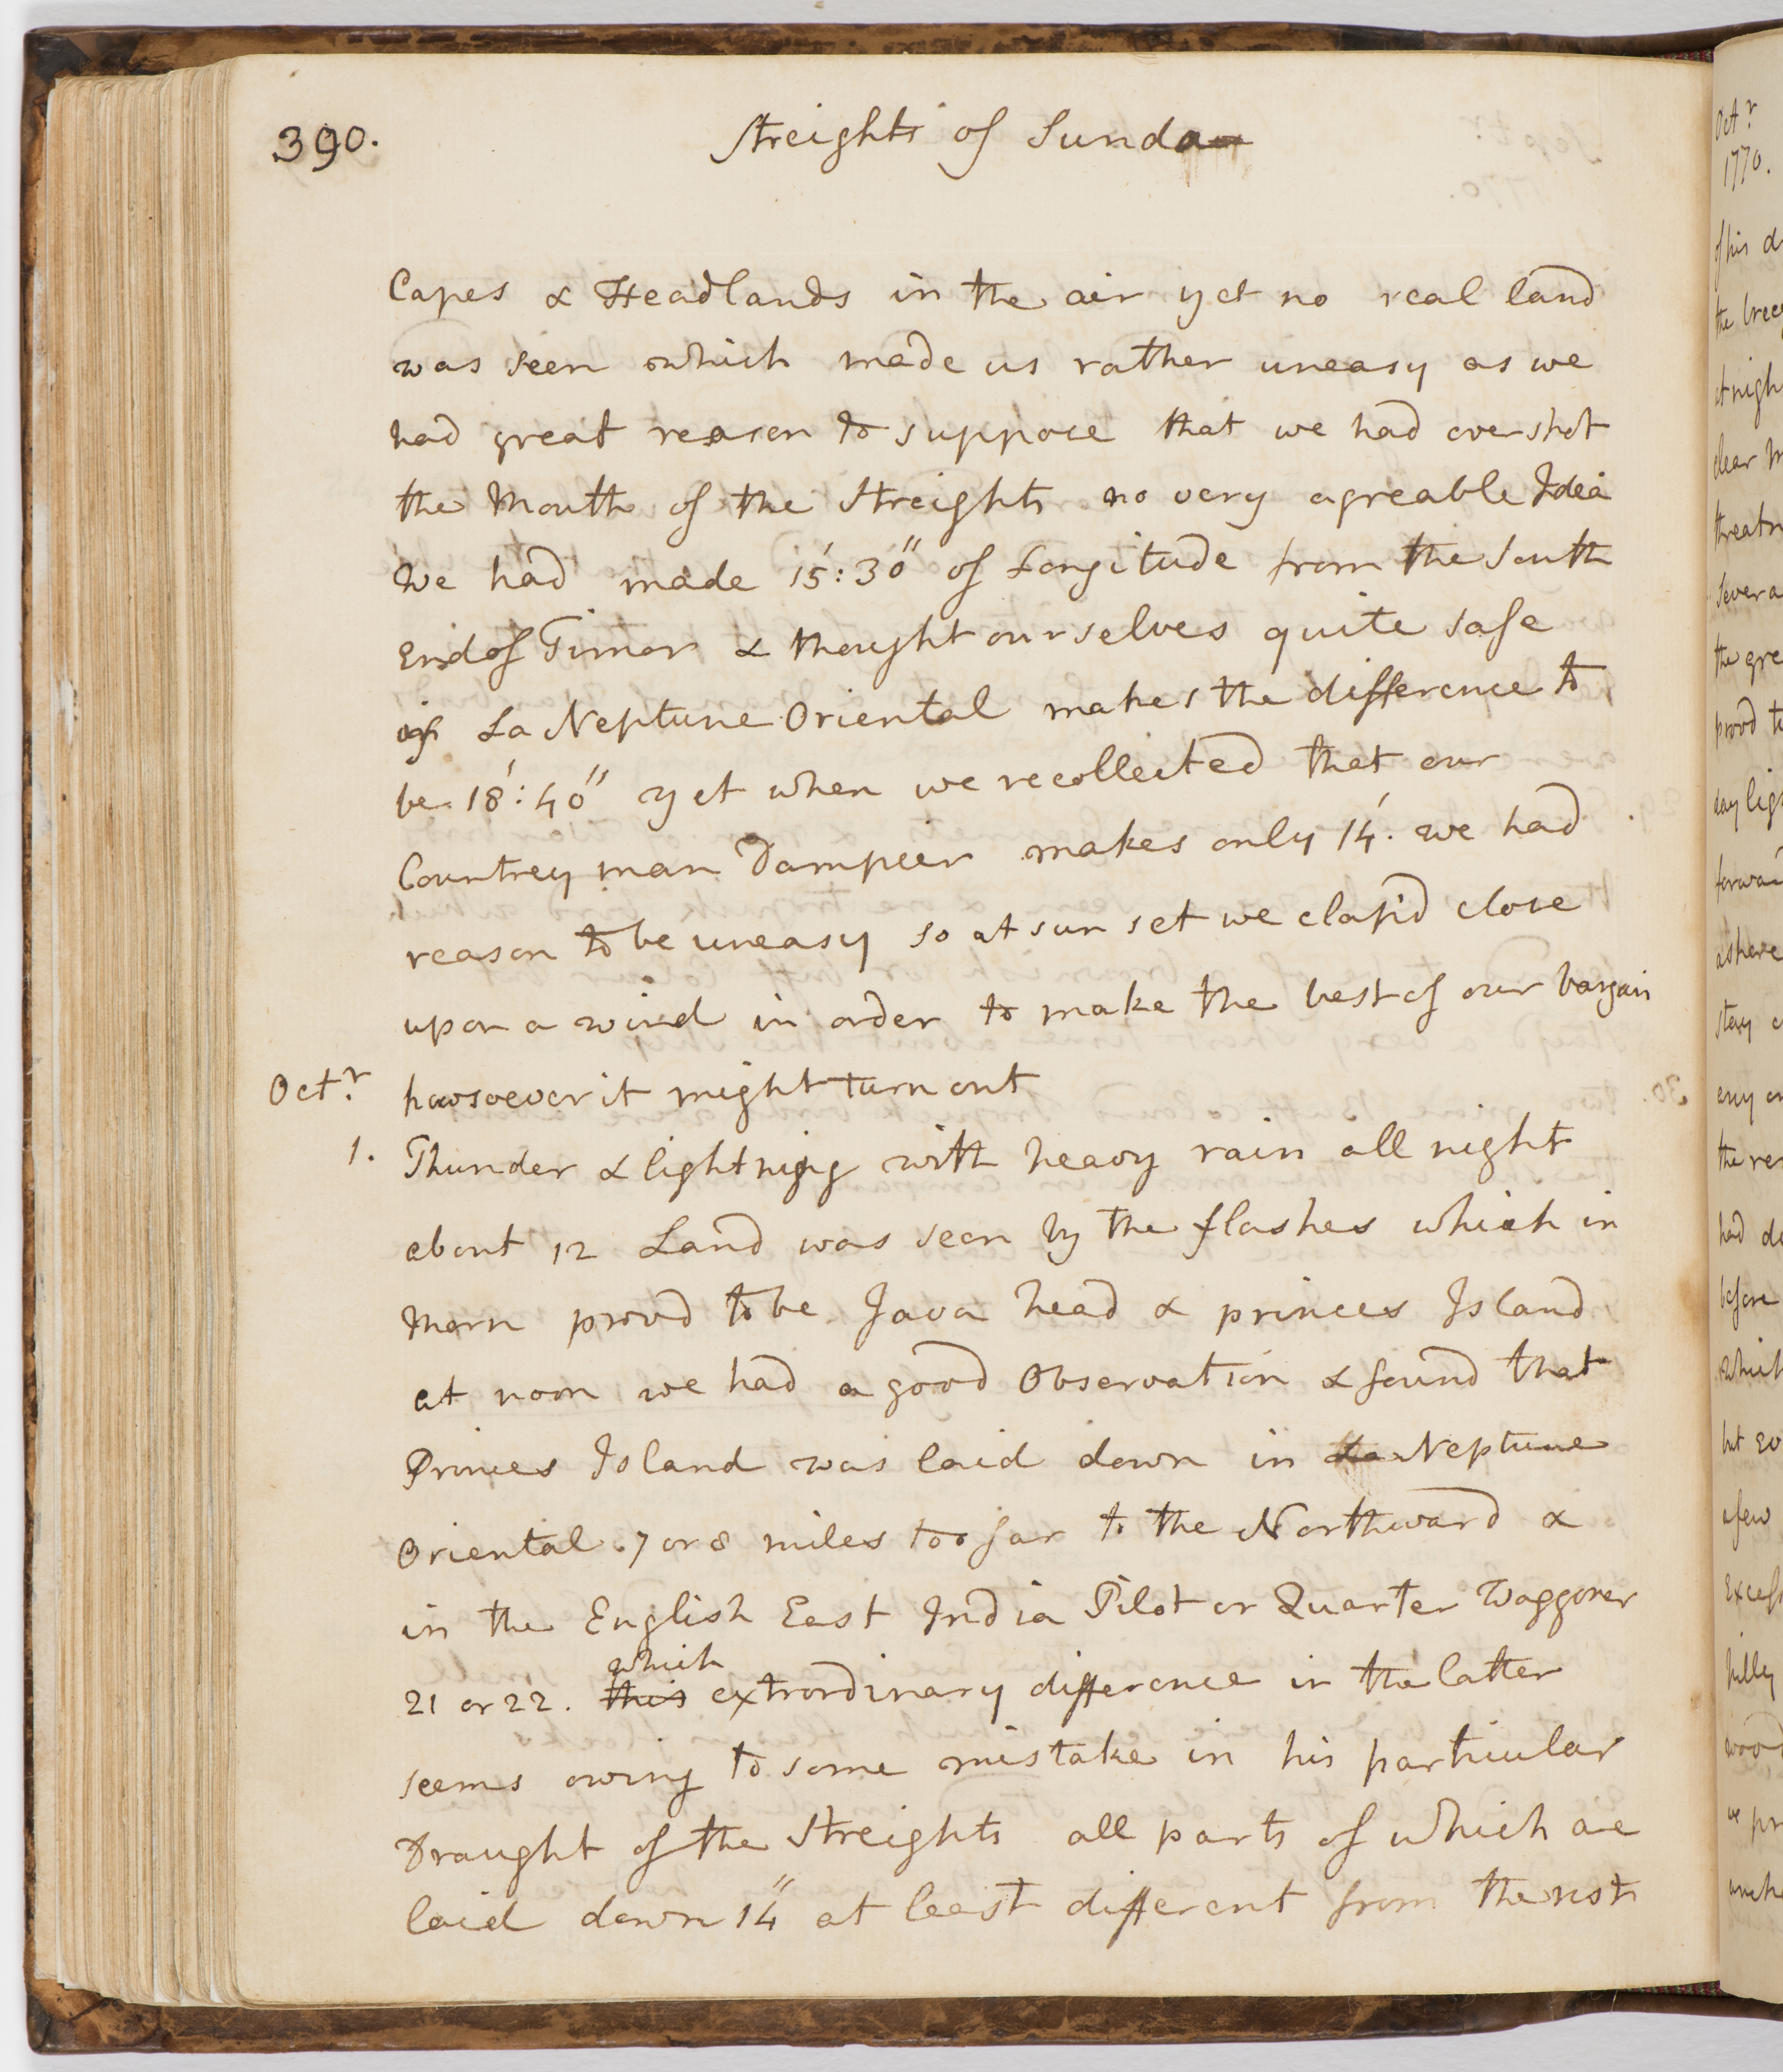 390.
Streights of Sunda
Capes & Headlands in the air yet no real land
was seen which made us rather uneasy as we
had great reason to suppose that we had overshot
the Mouth of the Streights no very agreable Idea
We had made 15': 30" of Longitude from the South
End of Timor & thought ourselves quite safe
if La Neptune Oriental makes the difference to
be 18': 40" yet when we recollected that our
Countrey man Dampeir makes only 14'. we had
reason to be uneasy so at sun set we clap'd close
upon a wind in order to make the best of our bargain
Octr. howsoever it might turn out
1. Thunder & lightning with heavy rain all night
about 12 Land was seen by the flashes which in
Morn provd to be Java head & princes Island
at noon we had a good Observation & found that
Princes Island was laid down in La Neptune
Oriental 7 or 8 miles too far to the Northward &
in the English East India Pilot or Quarter Waggoner
which
21 or 22. this extrordinary difference in the latter
seems owing to some mistake in his particular
Draught of the Streights all parts of which are
laid down 14" at least different from the rest
Octr.
1770.
of his
the
clear
the
day
forwa
as here
stay
the
had
before
which
but
a few
hilly
we